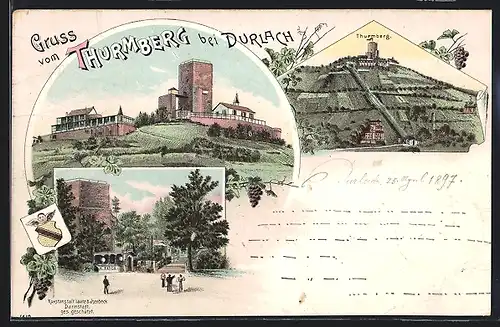 Gruss
vom THURMBERG bei DURLACH
Thurmberg.
Durlach 25 April 1897.
Kunstanstalt Lautz & Isenbeck
Darmstadt.
ges. geschützt.